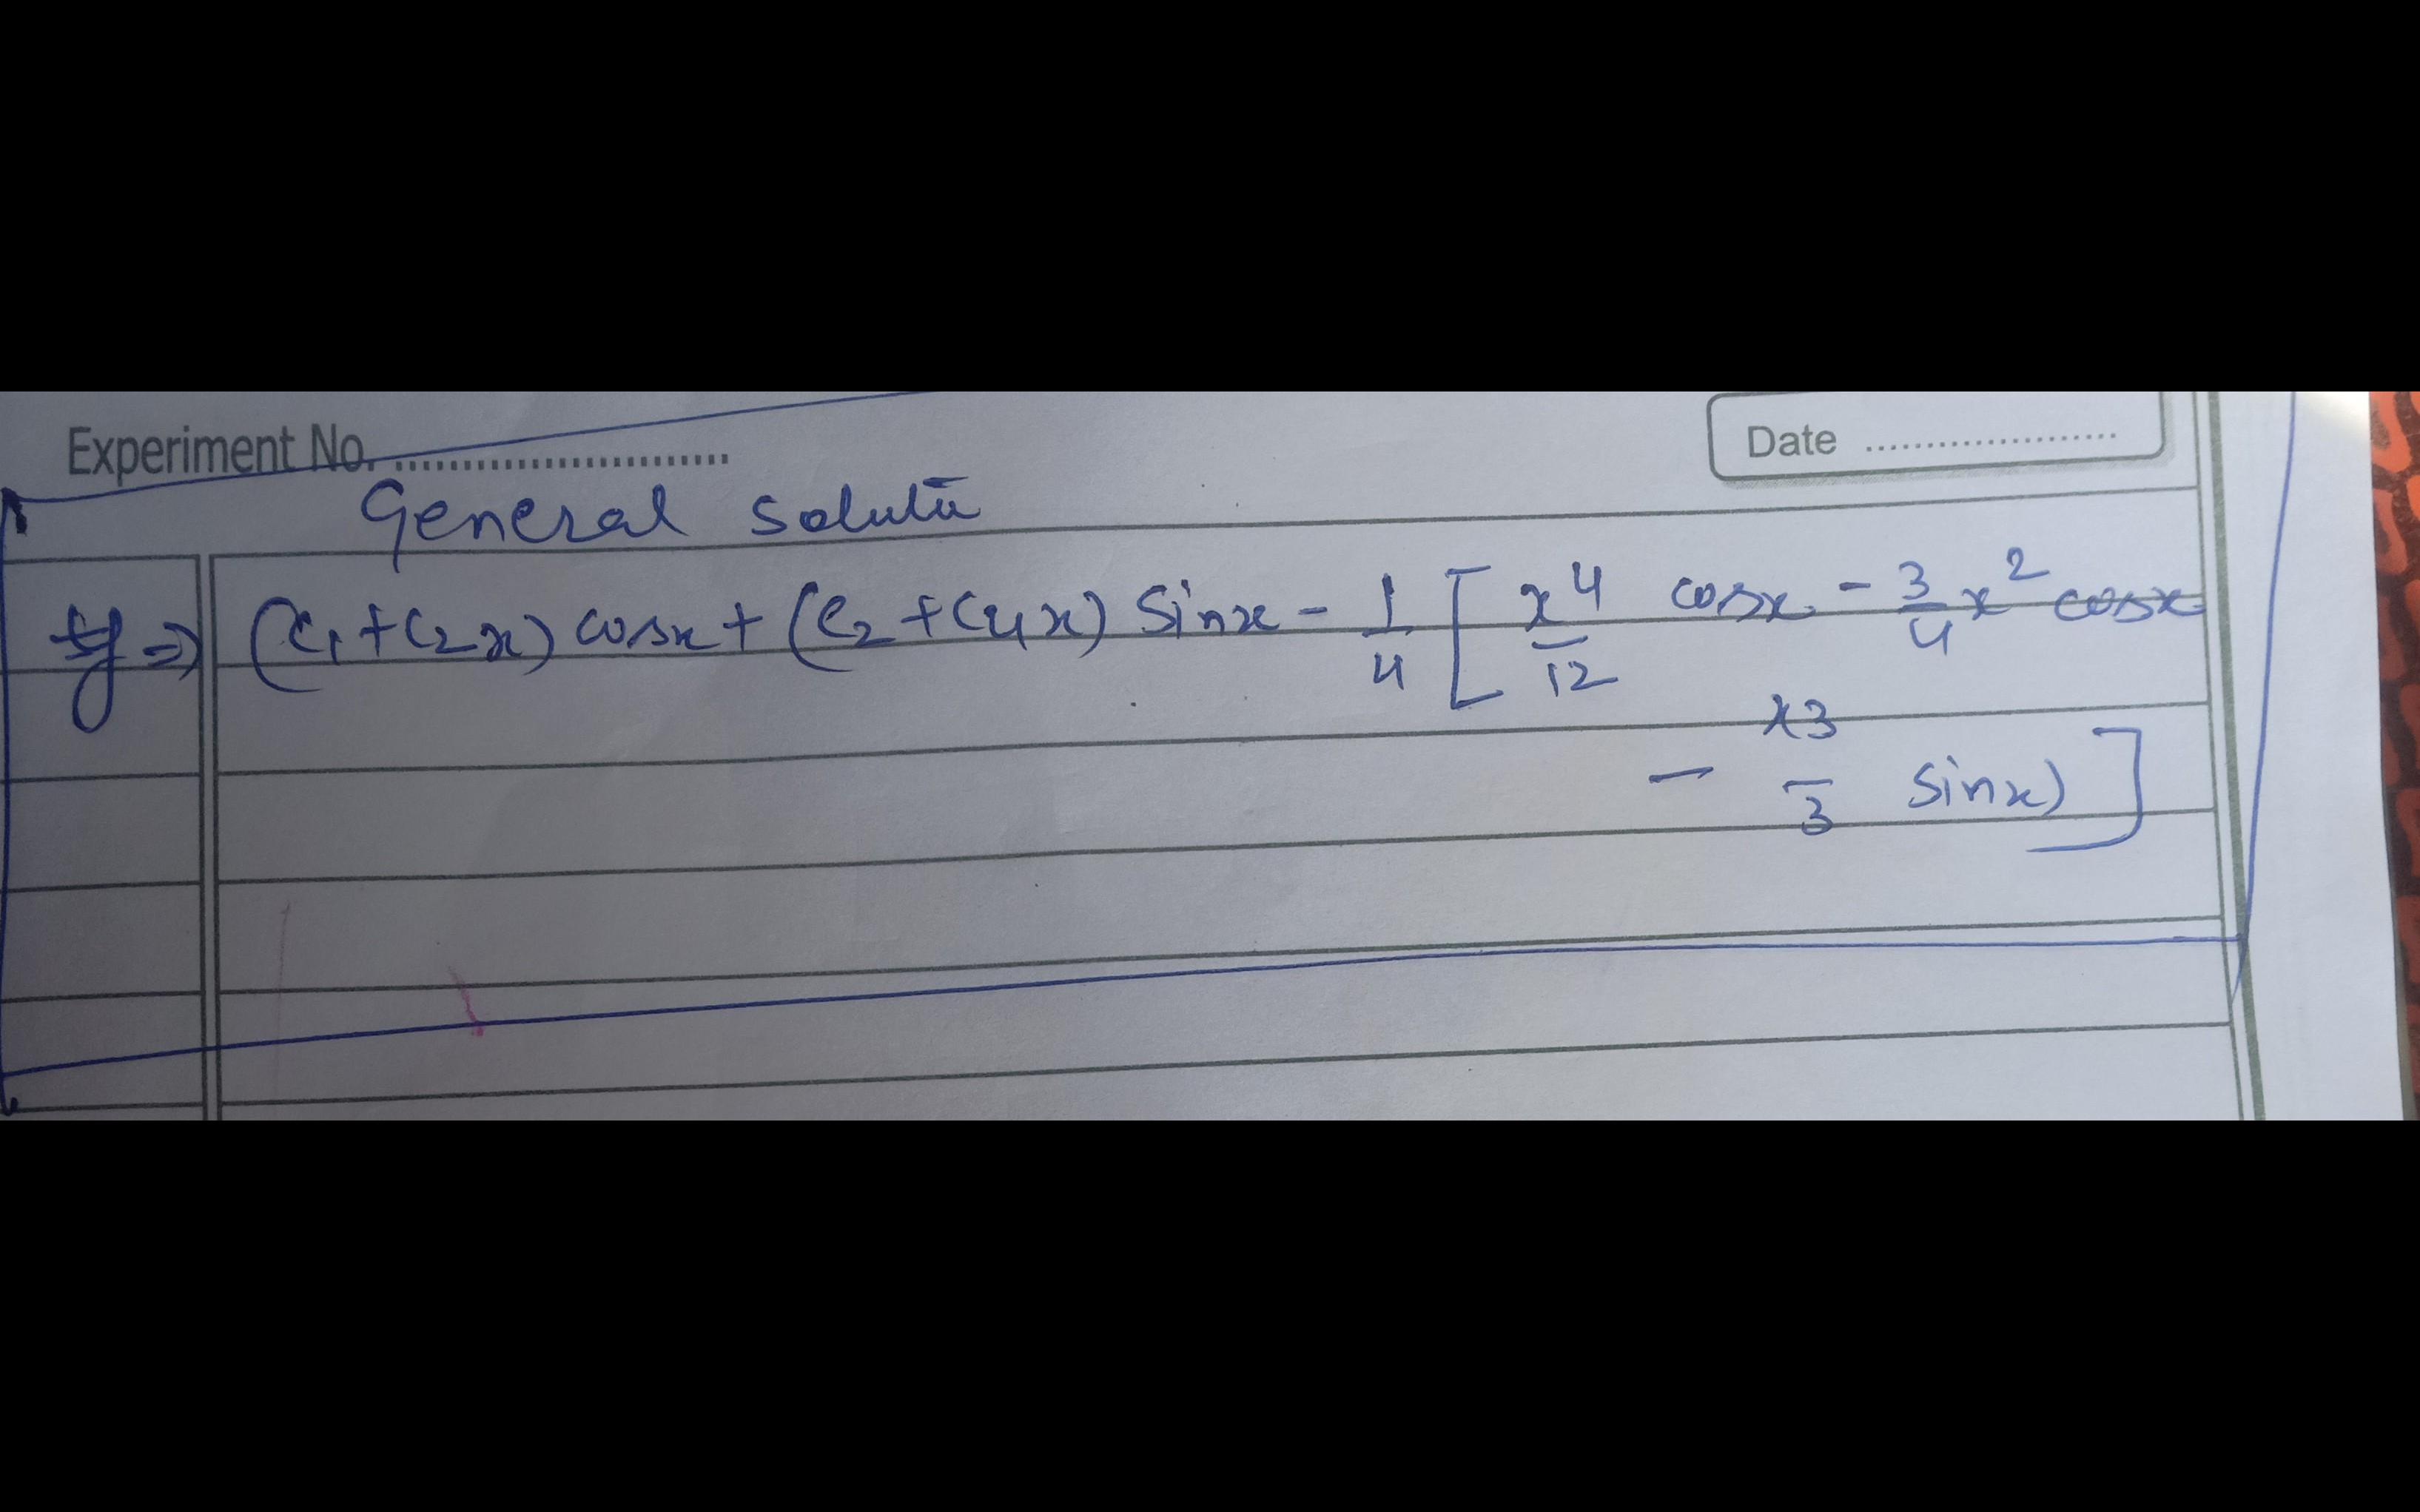 Experiment No. ..........................
Date .....................
General soluti
y ⇒ (c₁ + c₂x) cosx + (c₂ + c₄x) Sinx - 1/4 [ x⁴/12 cosx - 3/4 x² cosx
- x3/3 Sinx) ]